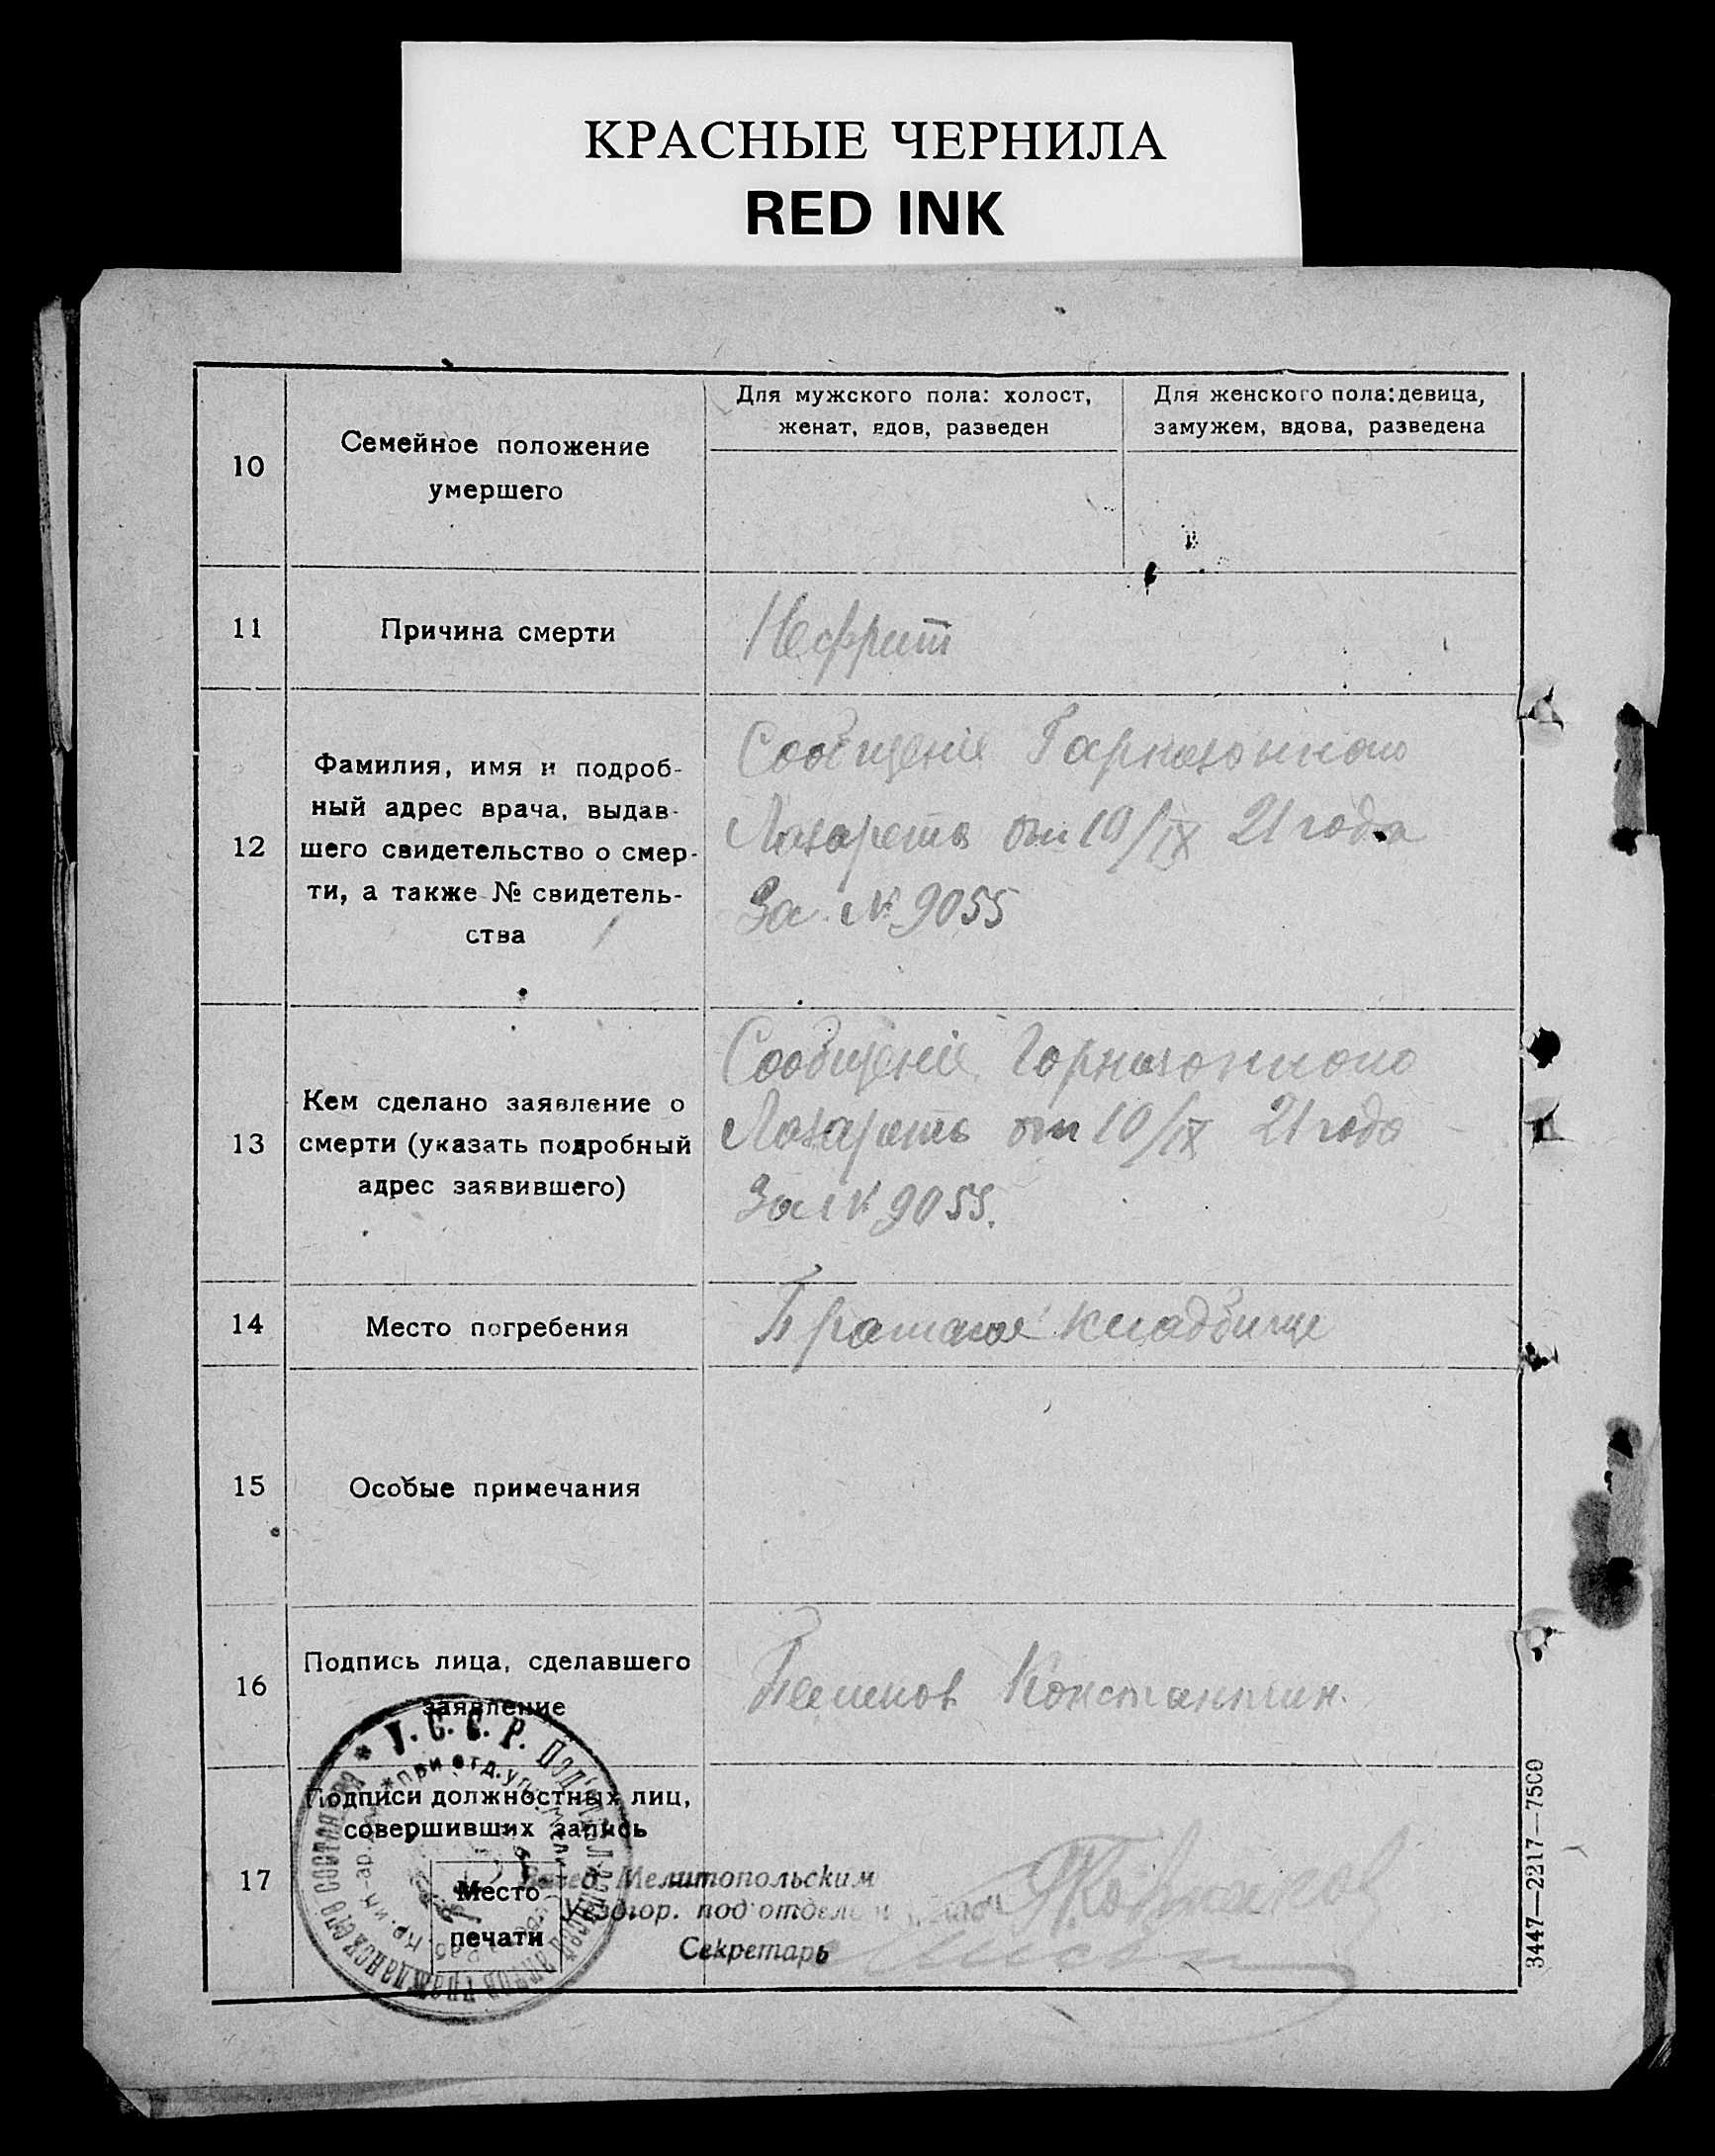 КРАСНЫЕ ЧЕРНИЛА
RED INK
10
Семейное положение
умершего
Для мужского пола: холост,
женат, вдов, разведен
Для женского пола: девица,
замужем, вдова, разведена
11
Причина смерти
Нефрит
12
Фамилия, имя и подроб-
ный адрес врача, выдав-
шего свидетельство о смер-
ти, а также № свидетель-
ства
Сообщение Гарнизонного
Лазарета от 10/IX 21 года
За № 9055
13
Кем сделано заявление о
смерти (указать подробный
адрес заявившего)
Сообщение Гарнизонного
Лазарета от 10/IX 21 года
За № 9055.
14
Место погребения
Братское кладбище
15
Особые примечания
16
Подпись лица, сделавшего
заявление
Константин.
17
Подписи должностных лиц,
совершивших запись
Место
печати
Завед. Мелитопольским
Уездгор. под'отделом
Секретарь
У. С. С. Р.
3447—2217—7500